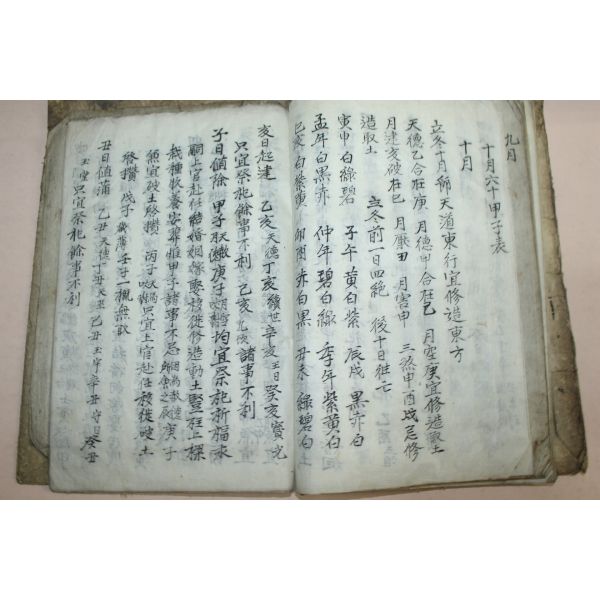 九月
十月六十甲子表
十月
立冬十月節 天道東行宜修造東方
天德乙合在庚 月德甲合在己 月空庚宜修造取土
月建亥破在巳 月厭丑 月害申 三煞申酉戌忌修
造取土 立冬前一日四絶 後十日往亡
孟年白黑赤 仲年碧白綠 季年紫黃白
寅申白綠碧 子午黃白紫 辰戌黑赤白
巳亥白紫黃 卯酉赤白黑 丑未綠碧白
亥日起建 乙亥天德丁亥續世辛亥王日癸亥寶光
只宜祭祀餘事不利 乙亥 諸事不利
子日值除 甲子天 庚子 均宜祭祀祈福求
嗣上官赴任結婚姻嫁娶移徙修造動土竪柱上樑
栽種牧養安葬惟甲子諸事不忌 庚子
須宜破土啓攢 丙子 只宜上官赴任移徙破土
啓攢 戊子 壬子
丑日值滿 乙丑天德丁丑 己丑 辛丑守日癸丑
玉堂只宜祭祀餘事不利